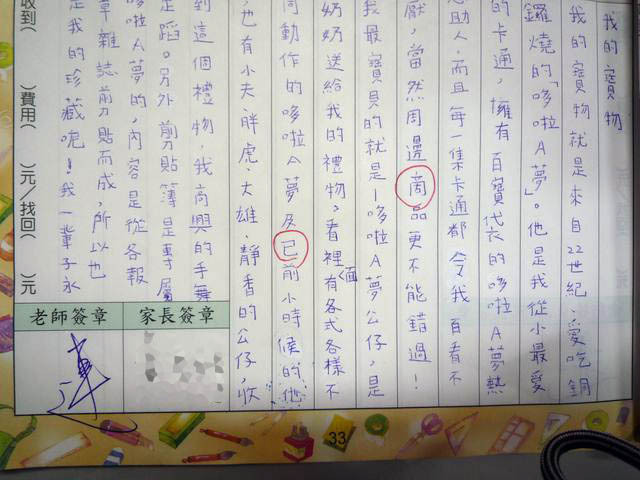 我的寶物
我的寶物就是來自22世紀、愛吃銅
鑼燒的「哆啦A夢」。他是我從小最愛
的卡通，擁有百寶袋的哆啦A夢熱
助人，而且每一集卡通都令我百看不
厭，當然周邊商品更不能錯過！
我最寶貝的就是－哆啦A夢公仔，是
奶奶送給我的禮物。看裡面有各式各樣不
同動作的哆啦A夢及已前小時候的他
，也有小夫、胖虎、大雄、靜香的公仔，收
到這個禮物，我高興的手舞
足蹈。另外剪貼簿是專屬
哆啦A夢的，內容是從各報
章雜誌剪貼而成，所以也
是我的珍藏呢！我一輩子永
收到（ ）費用（ ）元/找回（ ）元
家長簽章
老師簽章
33